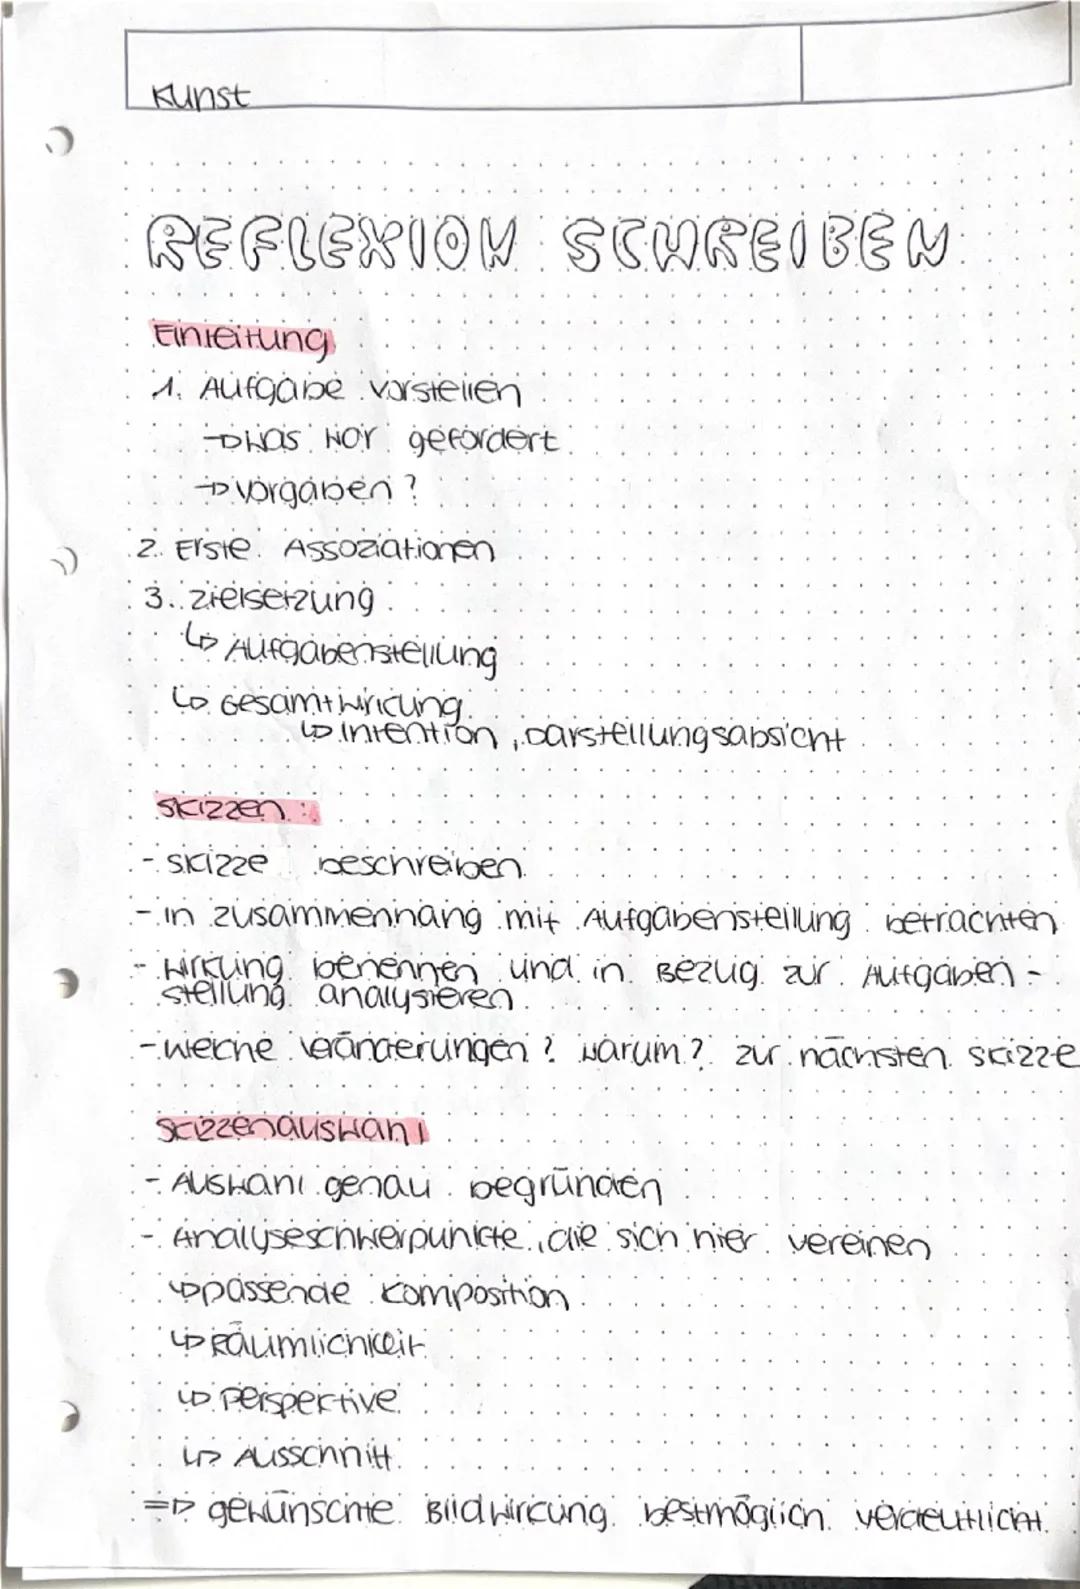 Kunst
REFLEXION SCHREIBEN
Einleitung
1. Aufgabe vorstellen
→ Was war gefordert
→ Vorgaben?
2. Erste Assoziationen
3. Zielsetzung
↳ Aufgabenstellung
↳ Gesamtwirkung
↳ Intention, Darstellungsabsicht
Skizzen:
- Skizze beschreiben
- in zusammenhang mit Aufgabenstellung betrachten
- Wirkung benennen und in Bezug zur Aufgaben-
stellung analysieren
- welche Veränderungen? Warum? zur nächsten Skizze
Skizzenauswahl
- Auswahl genau begründen
- Analyseschwerpunkte, die sich hier vereinen
↳ passende Komposition
↳ Räumlichkeit
↳ Perspektive
↳ Ausschnitt
⇒ gewünschte Bildwirkung bestmöglich verdeutlicht.